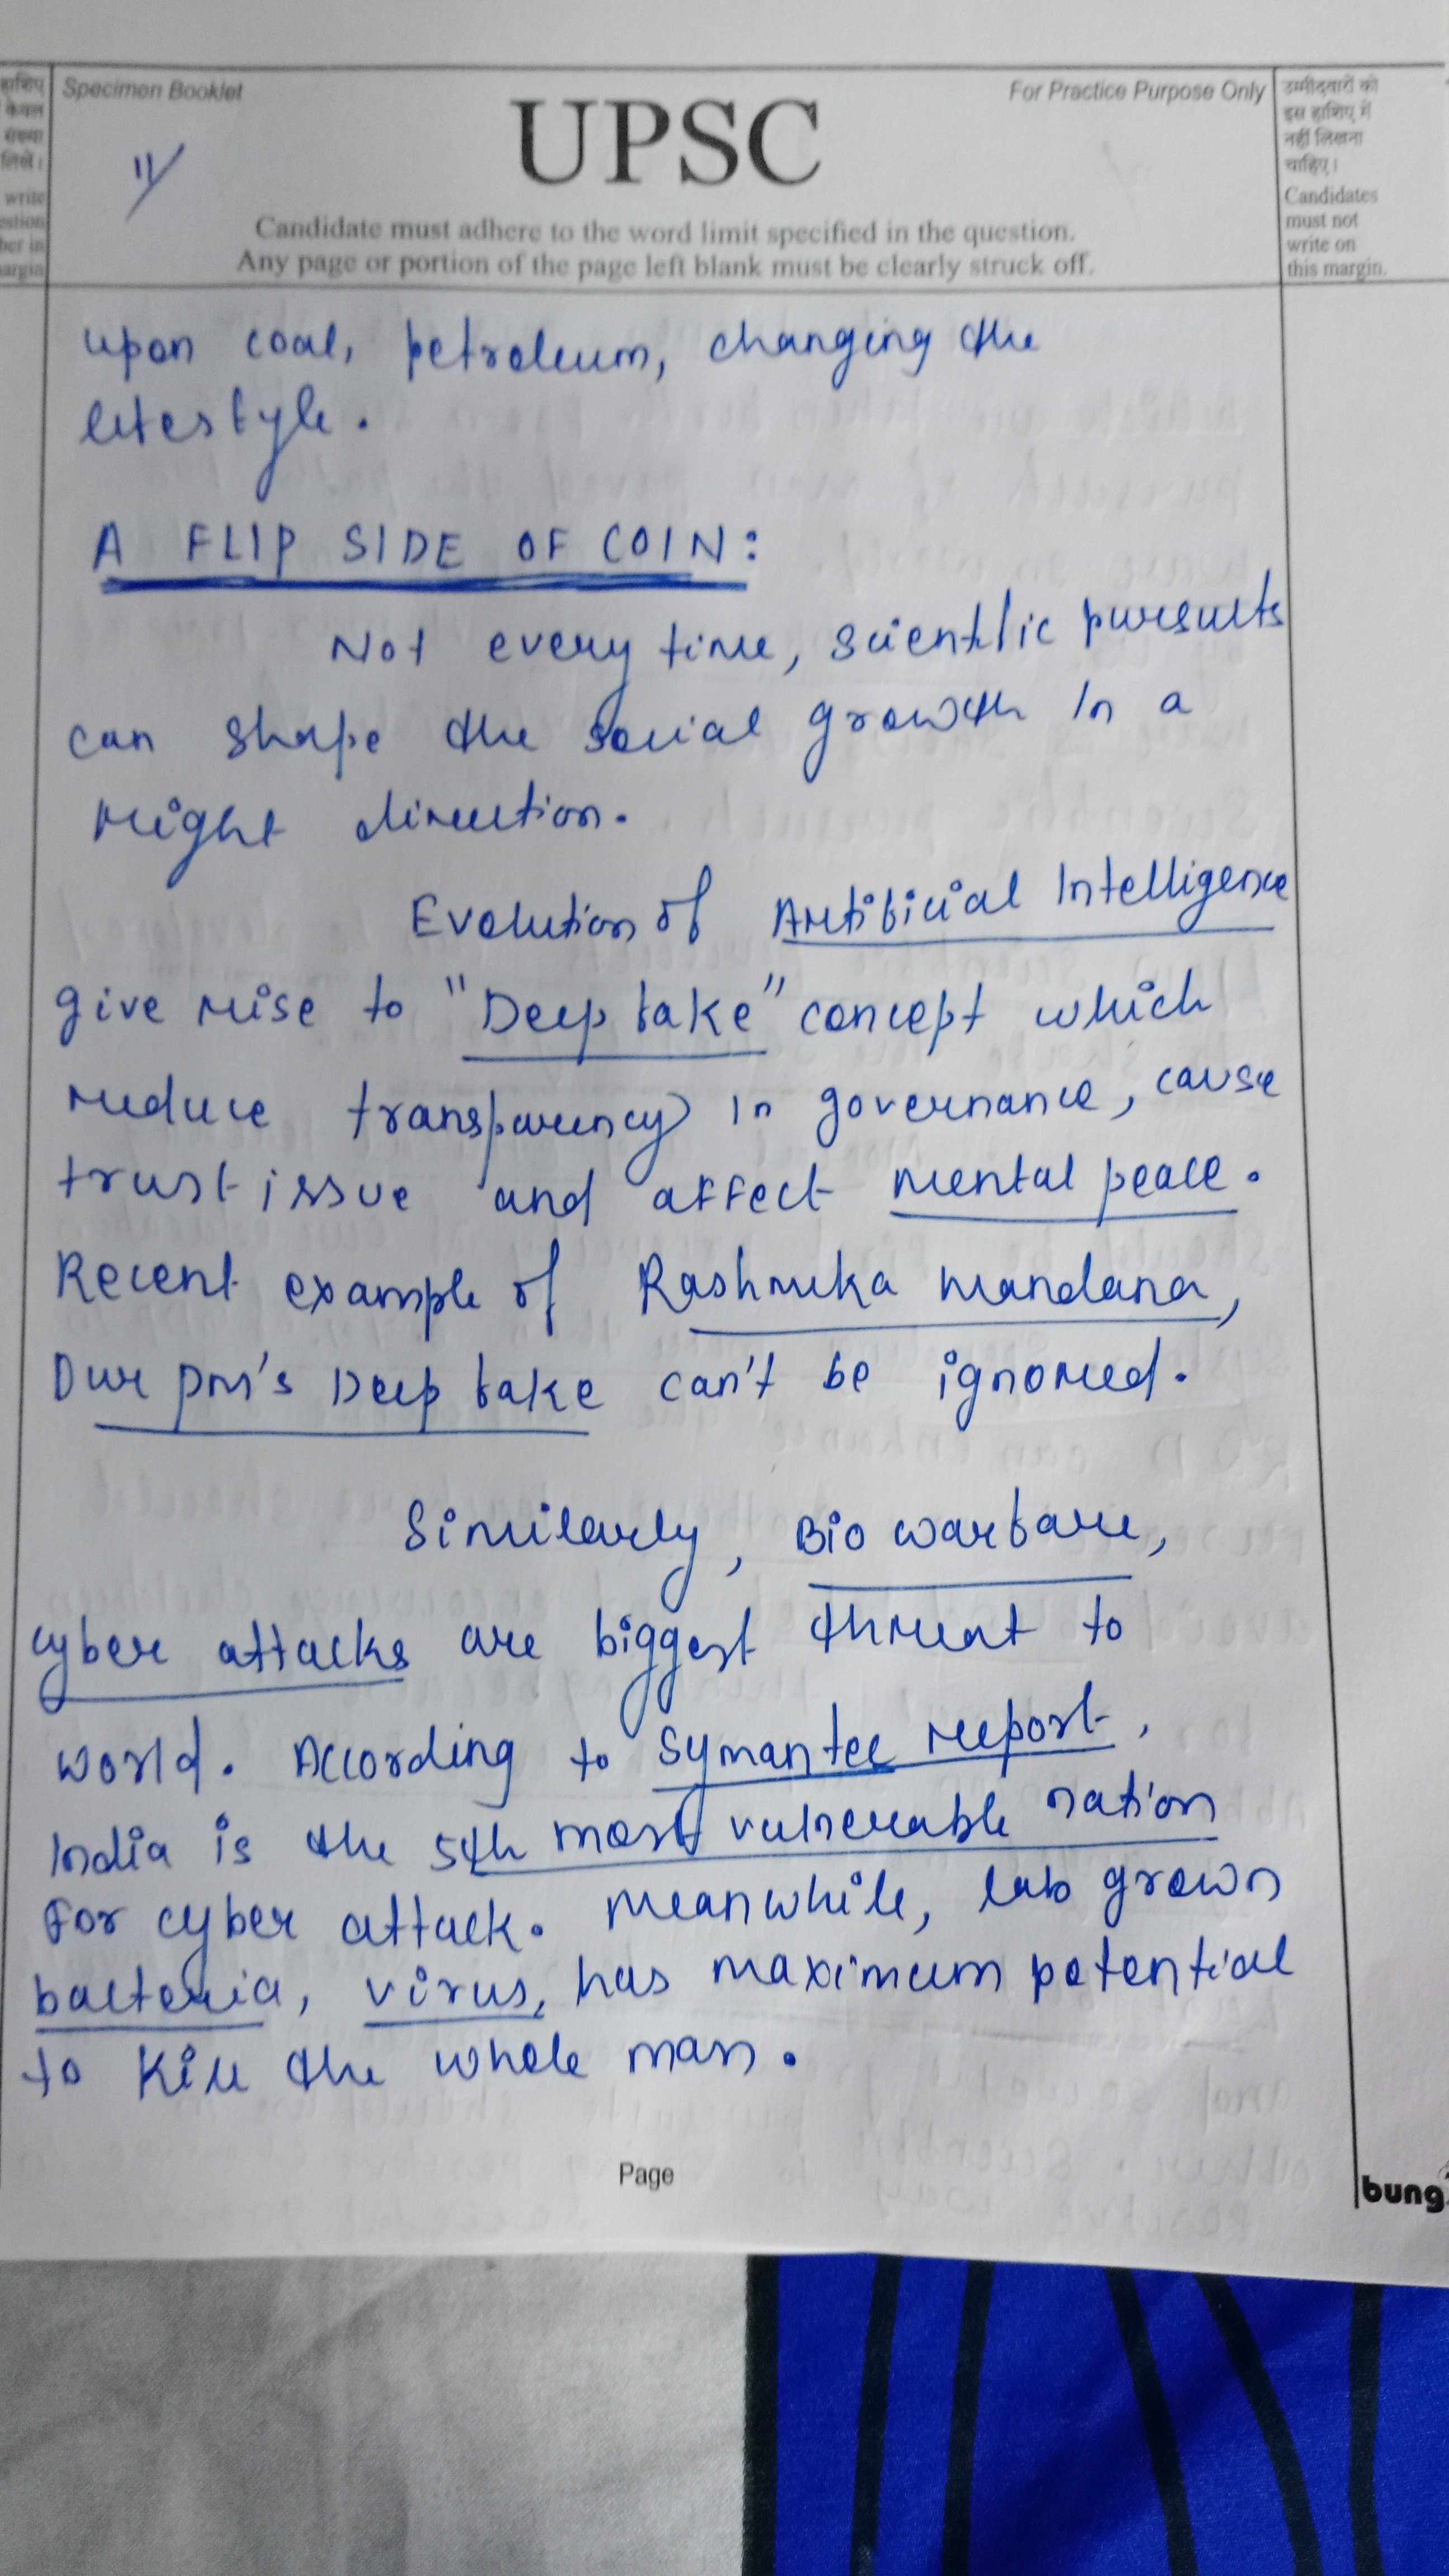 Specimen Booklet
For Practice Purpose Only
UPSC
11/
Candidate must adhere to the word limit specified in the question.
Any page or portion of the page left blank must be clearly struck off.
हाशिए
केवल
संख्या
लिखें।
write
estion
ber in
argin
उम्मीदवारों को
इस हाशिए में
नहीं लिखना
चाहिए।
Candidates
must not
write on
this margin.
upon coal, petroleum, changing the
lifestyle.
A FLIP SIDE OF COIN:
Not every time, scientific pursuits
can shape the social growth in a
right direction.
Evolution of Artificial Intelligence
give rise to "Deep fake" concept which
reduce transparency in governance, cause
trust issue and affect mental peace.
Recent example of Rashmika Mandana,
Our PM's Deep fake can't be ignored.
Similarly, Bio warfare,
cyber attacks are biggest threat to
world. According to Symantec report,
India is the 5th most vulnerable nation
for cyber attack. Meanwhile, lab grown
bacteria, virus, has maximum potential
to kill the whole man.
Page
bung